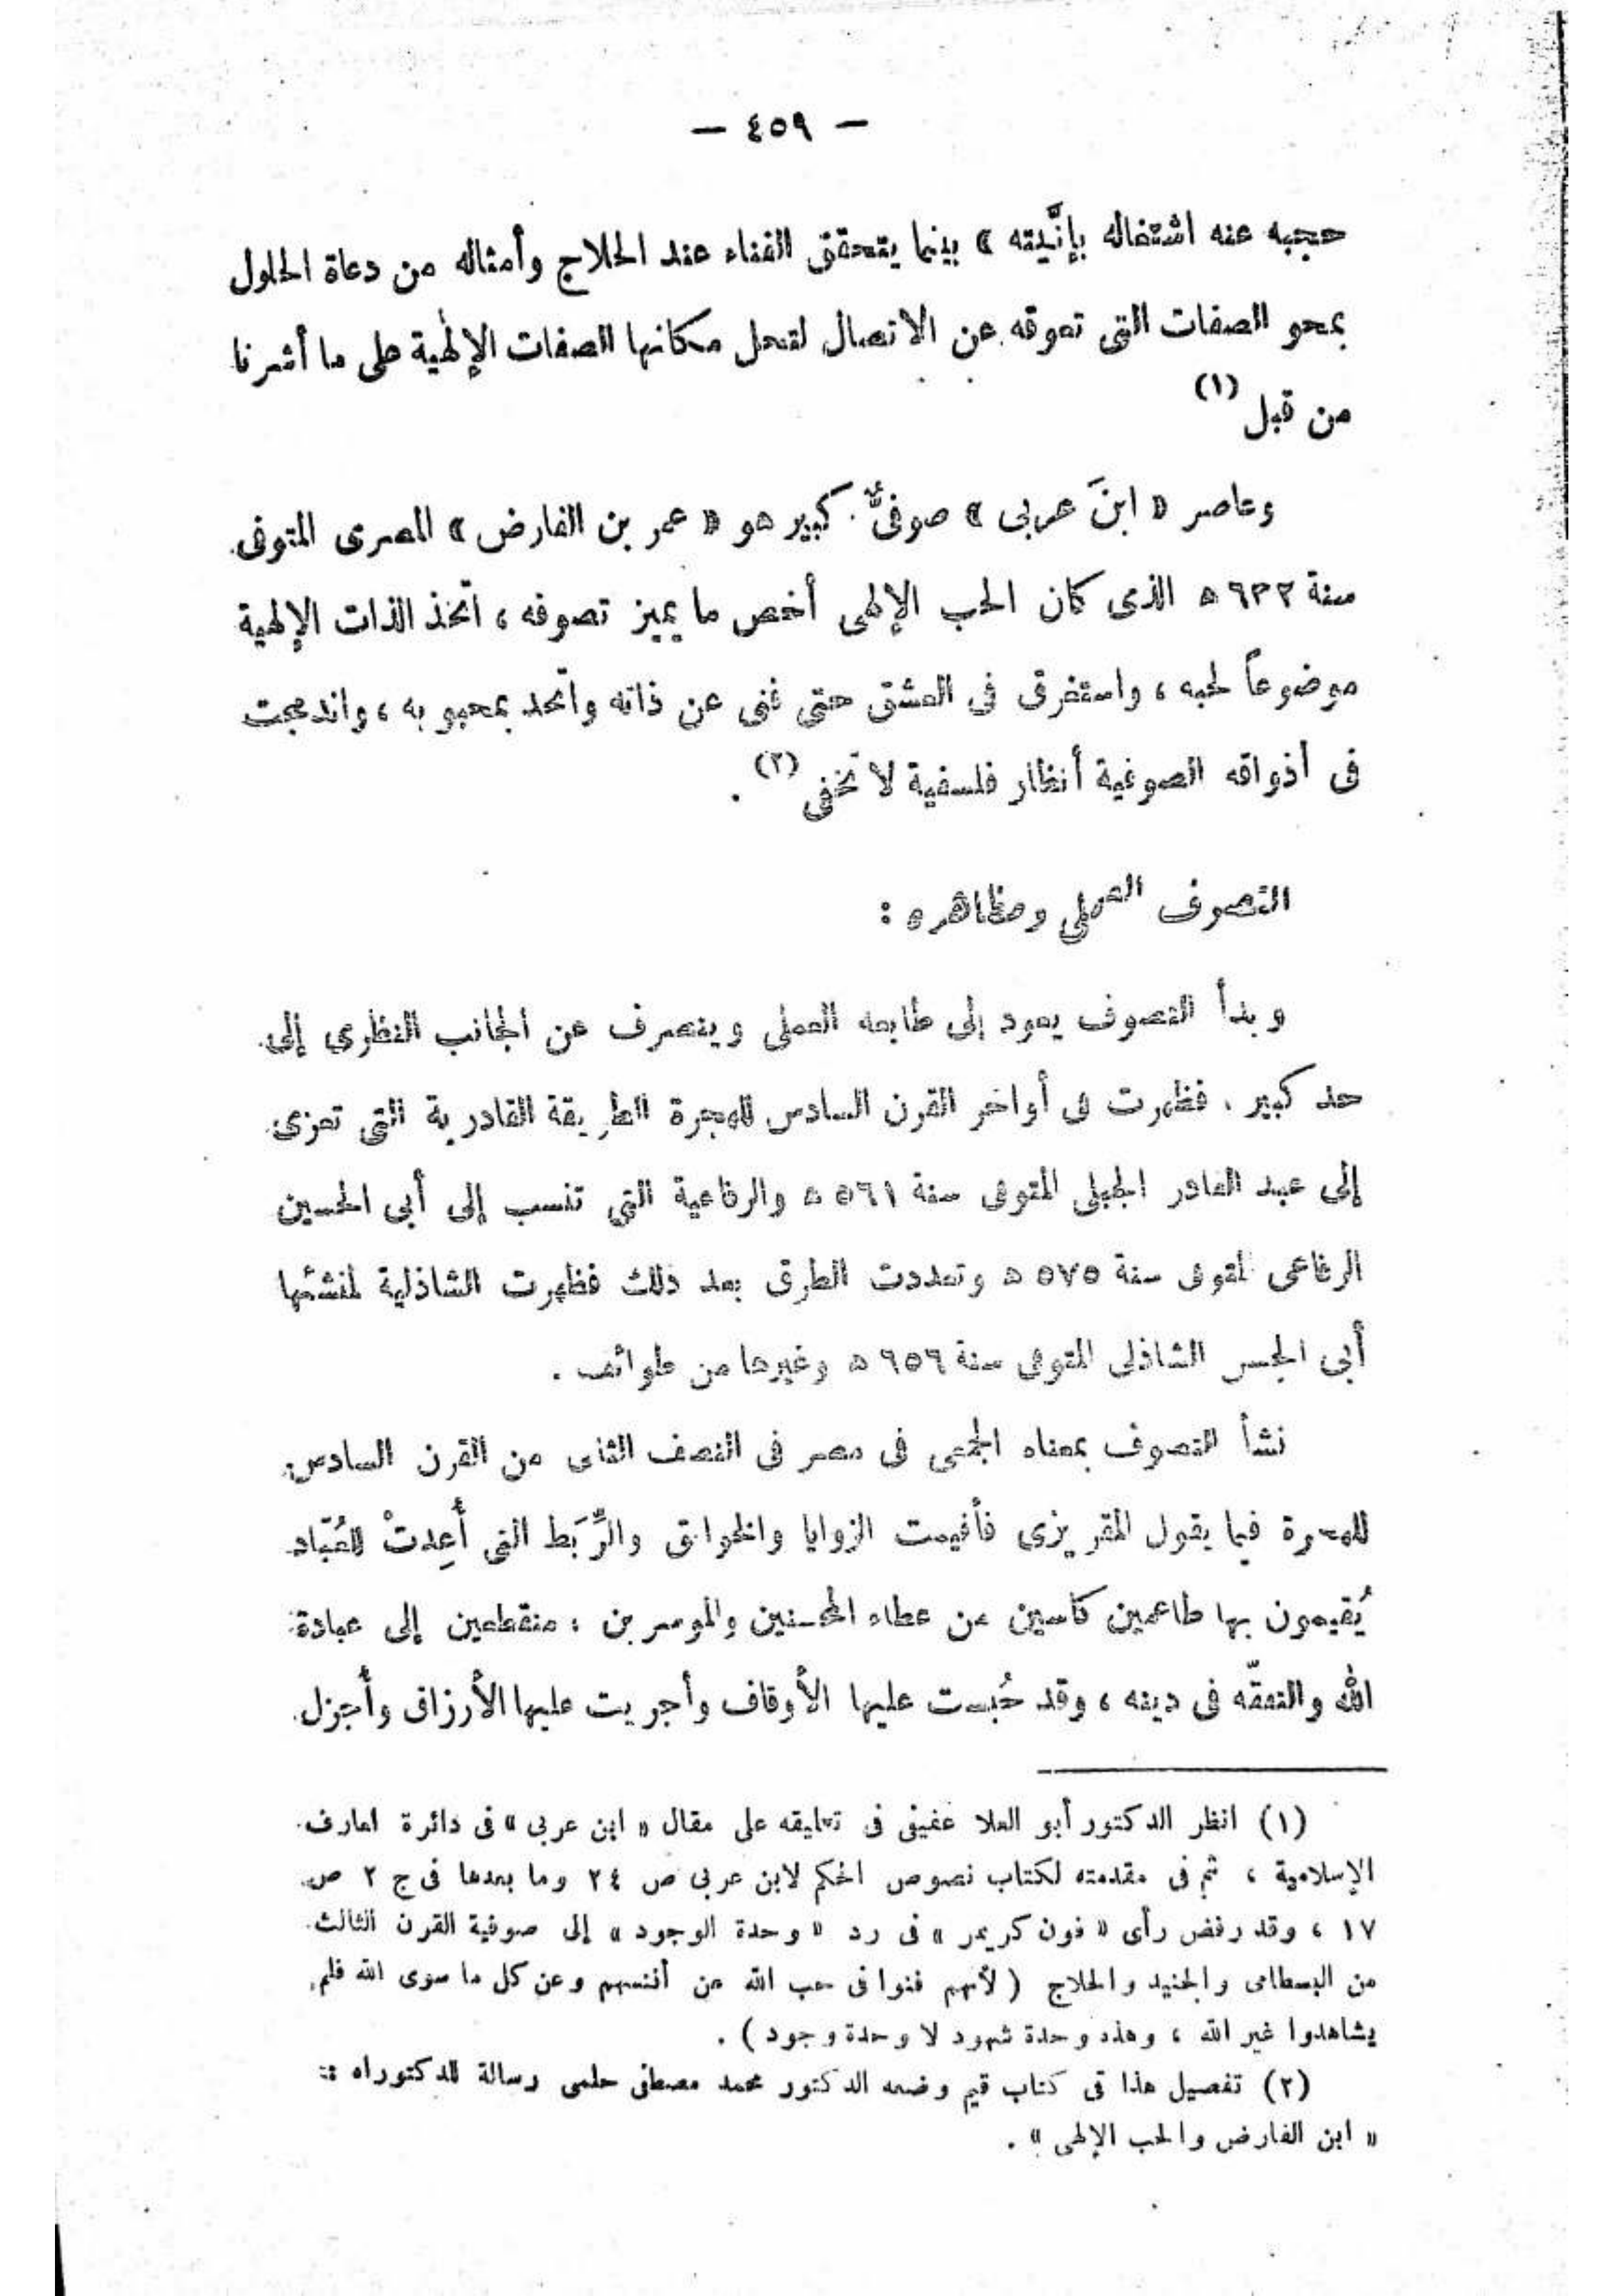 — ٤٥٩ —
حجبه عنه اشتغاله بإنَّيته » بينما يتحقق الفناء عند الحلاج وأمثاله من دعاة الحلول
بمحو الصفات التى تعوقه عن الاتصال لتحل مكانها الصفات الإلهية على ما أشرنا
من قبل (١)
وعاصر « ابنَ عربى » صوفىٌّ كبير هو « عمر بن الفارض » المصرى المتوفى
سنة ٦٣٢ ه الذى كان الحب الإلهى أخص ما يميز تصوفه ، اتخذ الذات الإلهية
موضوعاً لحبه ، واستغرق فى العشق حتى فنى عن ذاته واتحد بمحبوبه ، واندمجت
فى أذواقه الصوفية أنظار فلسفية لا تخفى (٢) .
التصوف العملى ومظاهره :
وبدأ التصوف يعود إلى طابعه العملى وينصرف عن الجانب النظرى إلى
حد كبير . فظهرت فى أواخر القرن السادس للهجرة الطريقة القادرية التى تعزى
إلى عبد القادر الجيلى المتوفى سنة ٥٦١ ه والرفاعية التى تنسب إلى أبى الحسين
الرفاعى لمتوفى سنة ٥٧٥ ه وتعددت الطرق بعد ذلك فظهرت الشاذلية لمنشئها
أبى الحسن الشاذلى المتوفى سنة ٦٥٦ ه وغيرها من طوائف .
نشأ التصوف بمعناه الجمعى فى مصر فى النصف الثانى من القرن السادس
للهجرة فيما يقول المقريزى فأقيمت الزوايا والخوانق والرِّبَط التى أُعِدتْ للعُبّاد
يُقيمون بها طاعمين كاسين من عطاء المحسنين والموسرين ؛ منقطعين إلى عبادة
الله والتفقّه فى دينه ، وقد حُبست عليها الأوقاف وأجريت عليها الأرزاق وأُجزل
(١) انظر الدكتور أبو العلا عفيفى فى تعليقه على مقال « ابن عربى » فى دائرة المعارف
الإسلامية ، ثم فى مقدمته لكتاب نصوص الحكم لابن عربى ص ٢٤ وما بعدها فى ج ٢ ص
١٧ ، وقد رفض رأى « فون كريمر » فى رد « وحدة الوجود » إلى صوفية القرن الثالث
من البسطامى والجنيد والحلاج ( لأنهم فنوا فى حب الله عن أنفسهم وعن كل ما سوى الله فلم
يشاهدوا غير الله ، وهذه وحدة شهود لا وحدة وجود ) .
(٢) تفصيل هذا فى كتاب قيم وضعه الدكتور محمد مصطفى حلمى رسالة للدكتوراه :
« ابن الفارض والحب الإلهى » .